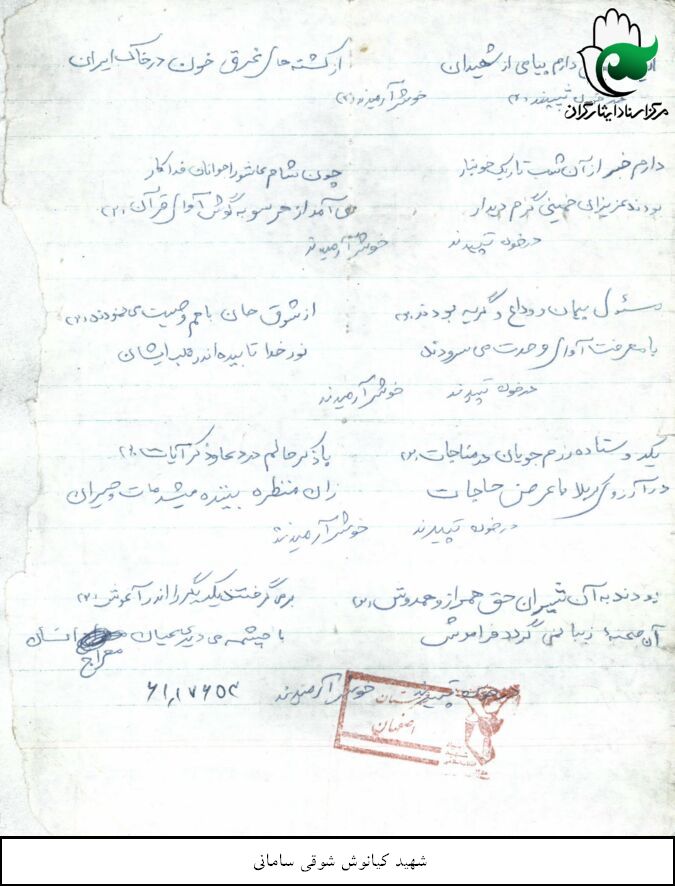 مرکز اسناد ایثارگران
دارم پیامی از شهیدان از کشته های غرق خون در خاک ایران
تپیدند (۲) خوش آرمیدند (۲)
دارم خبر از آن شب تاریک خونبار چون شام عاشورا جوانان فداکار
بودند عزیزان خمینی گرم دیدار می آمد از هر سو به گوش آوای قرآن (۲)
در خون تپیدند خوش آرمیدند
مشغول پیمان و وداع و گریه بودند (۲) از شوق جان با هم وصیت می نمودند (۲)
با معرفت آوای وحدت می سرودند نور خدا تابیده اندر قلب ایشان
در خون تپیدند خوش آرمیدند
یکدسته رزم جویان در مناجات (۲) با ذکر حالم در دعا و ذکر آیات (۲)
در آرزوی کربلا با عرض حاجات زان منظره بیننده میشد مات و حیران
در خون تپیدند خوش آرمیدند
بودند به آن شیران حق همراز و همدوش (۲) برمی گرفتند یکدیگر را اندر آغوش (۲)
آن صحنهٔ زیبا نمی گردد فراموش با چشم می دید عیان معراج انسان
در خون تپیدند خوش آرمیدند
اصفهان
شهید کیانوش شوقی سامانی